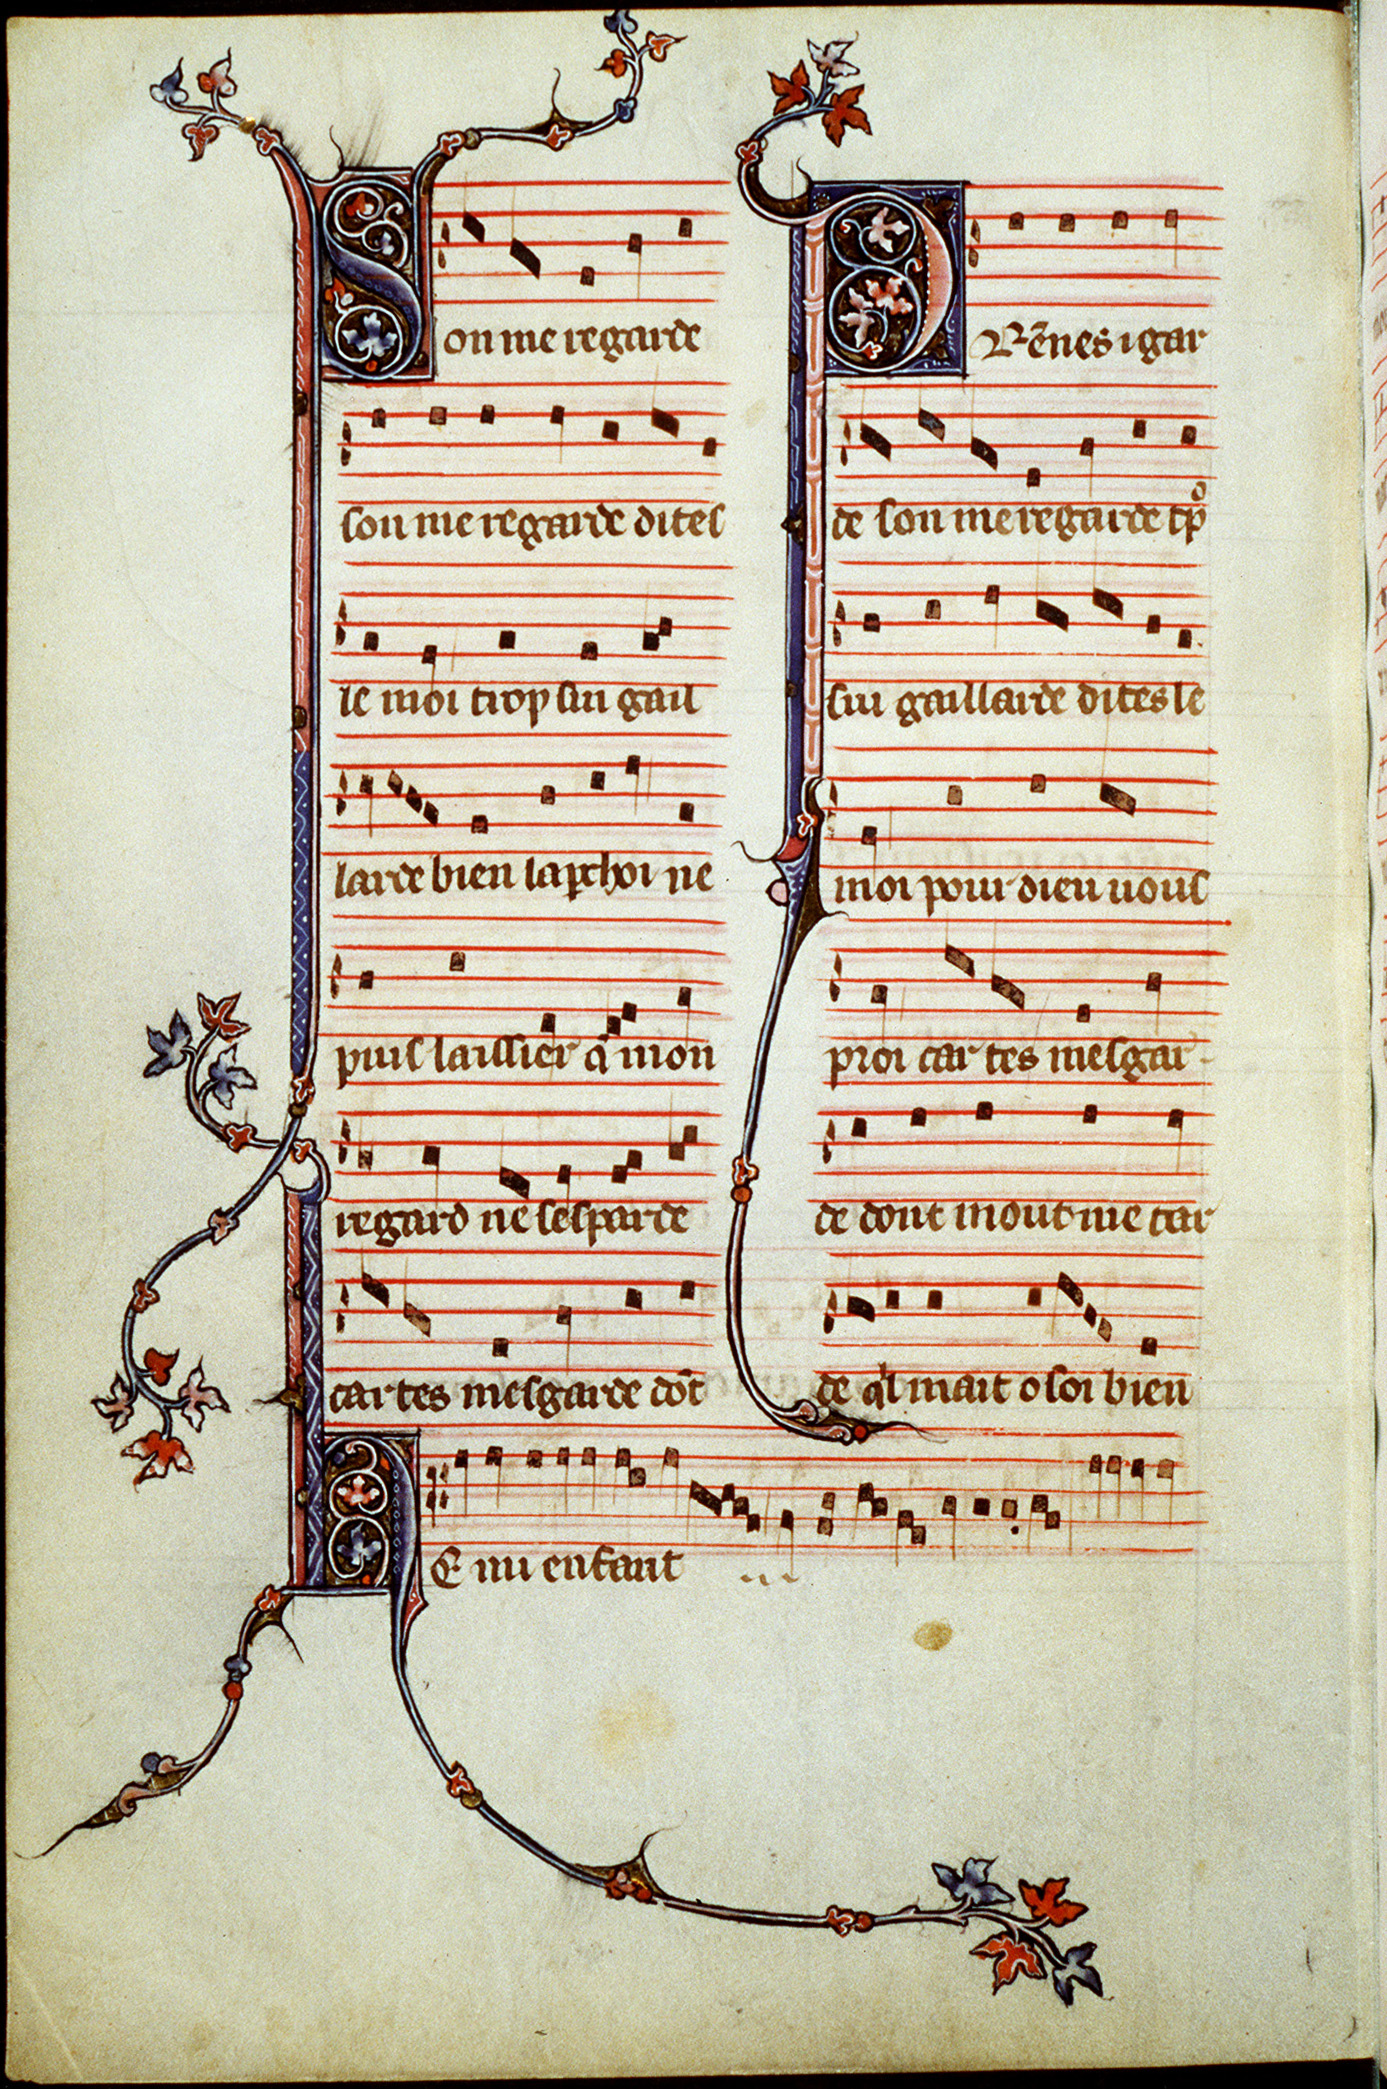 Son me regarde
son me regarde dites
le moi trop sui gail
larde bien laperchoi ne
puis laissier q̄ mon
regard ne sesparde
car tes mesgarde dōt
Prēnes i gar
de son me regarde tͦp
sui gaillarde dites le
moi pour dieu uous
proi car tes mesgar-
de dont mout me tar
de q'l mait o soi bien
He mi enfant